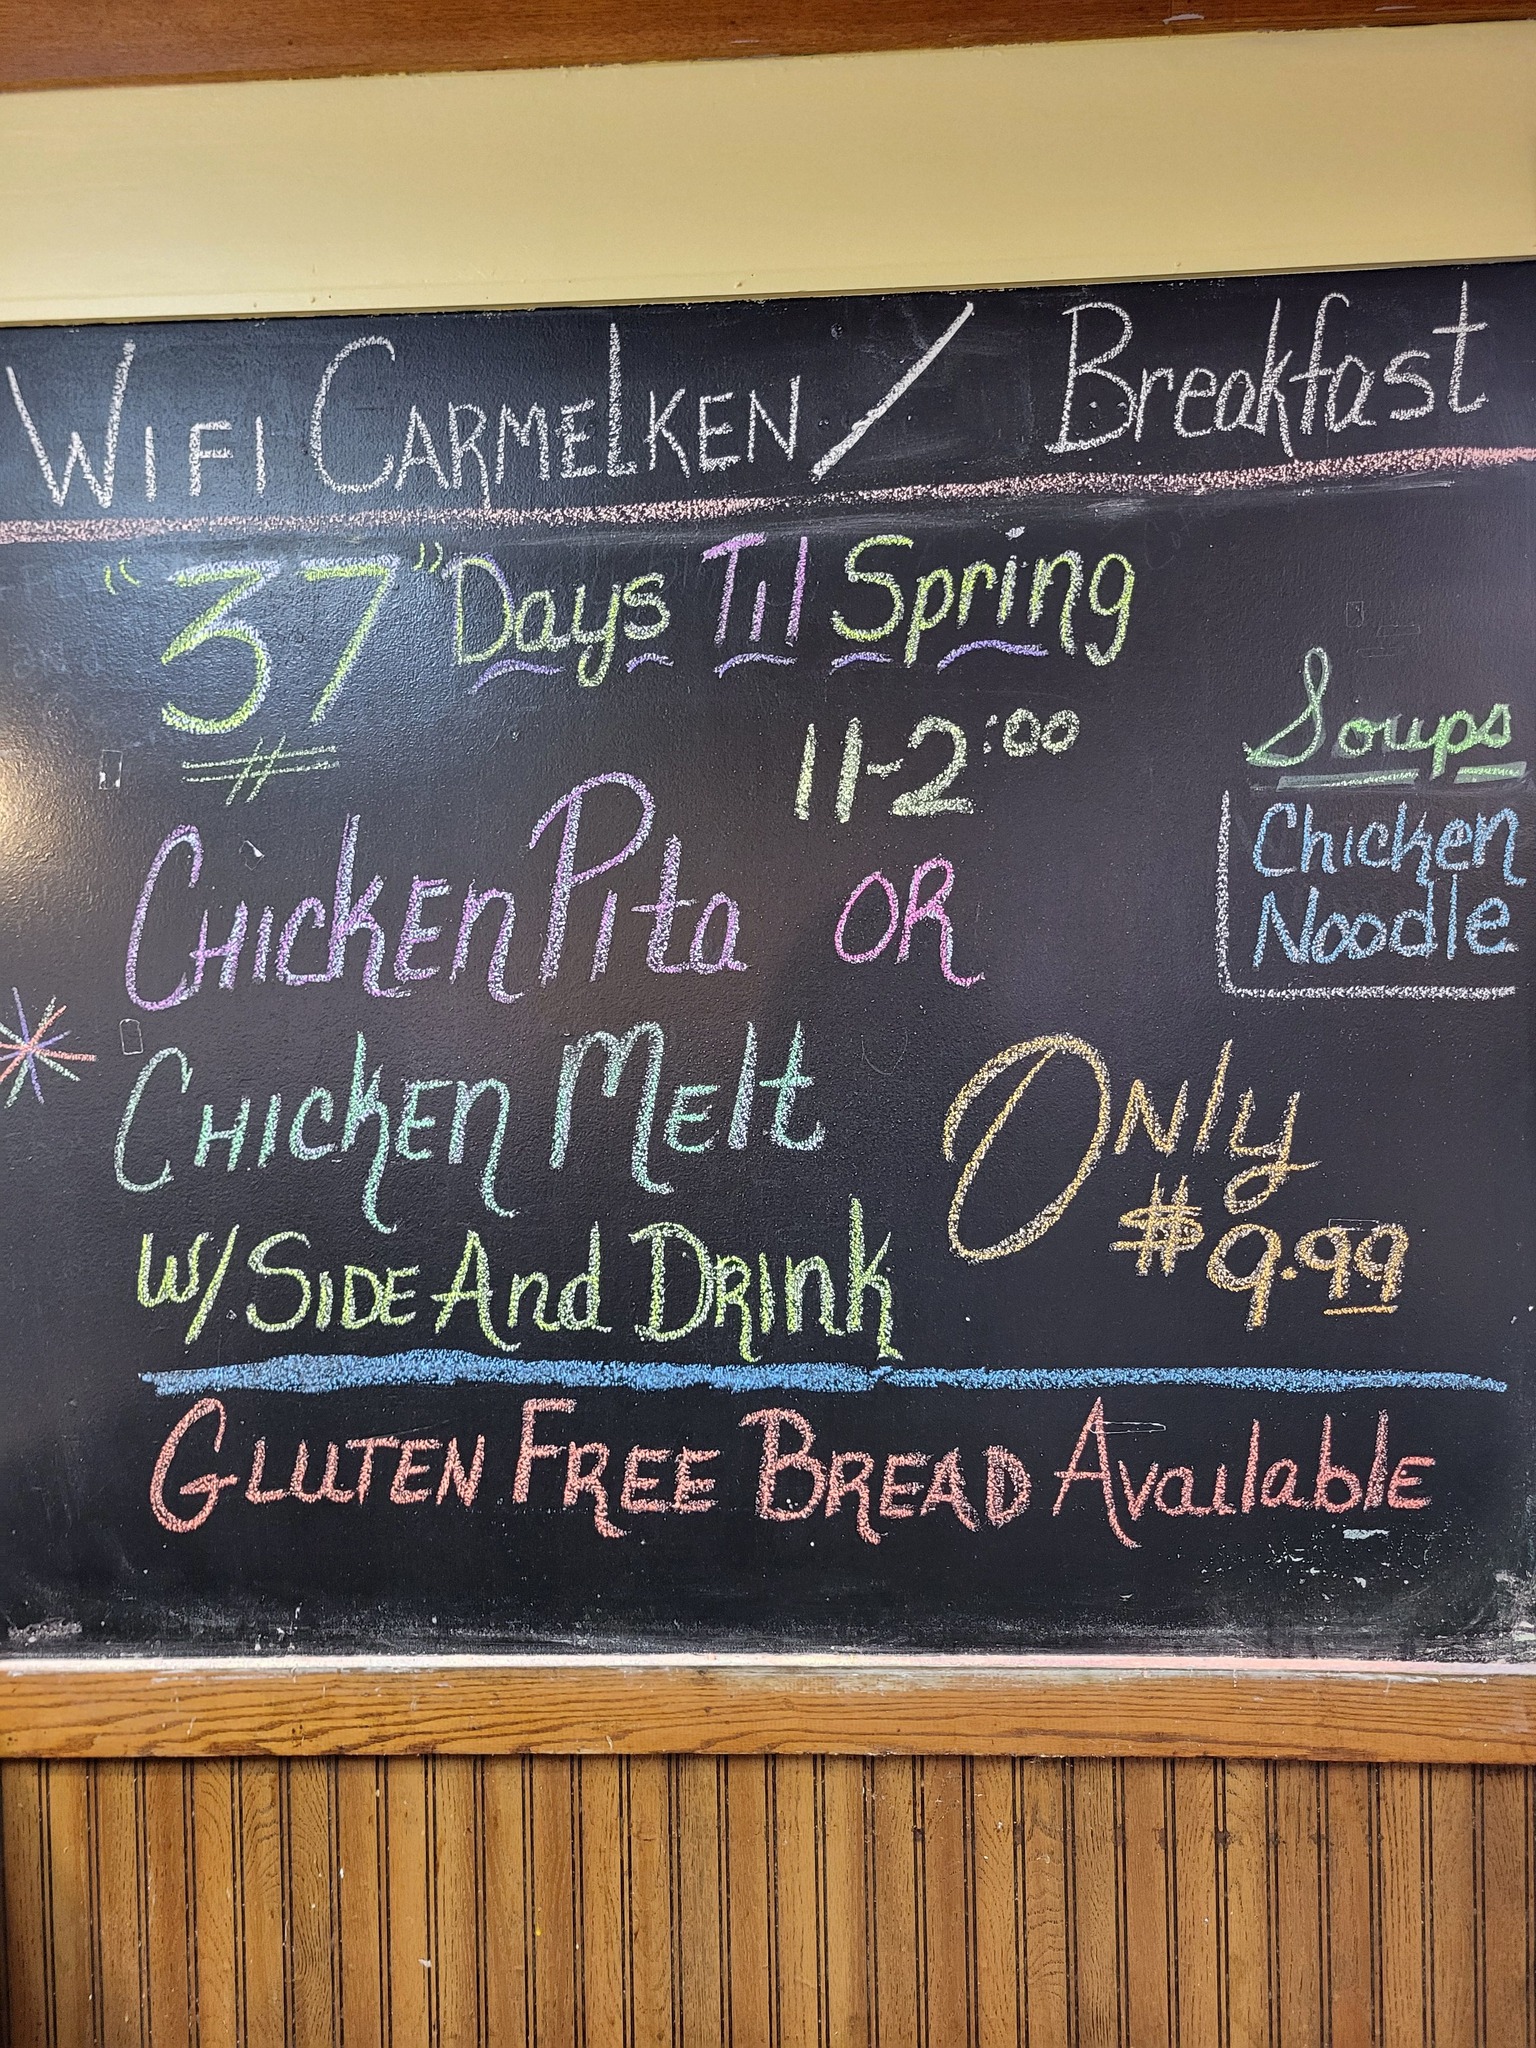 WIFI CARMELKEN / Breakfast
"37" Days Til Spring
11-2:00
Soups
Chicken
Noodle
CHICKEN Pita OR
CHICKEN Melt
Only
$9.99
W/ SIDE And DRINK
GLUTEN FREE BREAD AvailablE